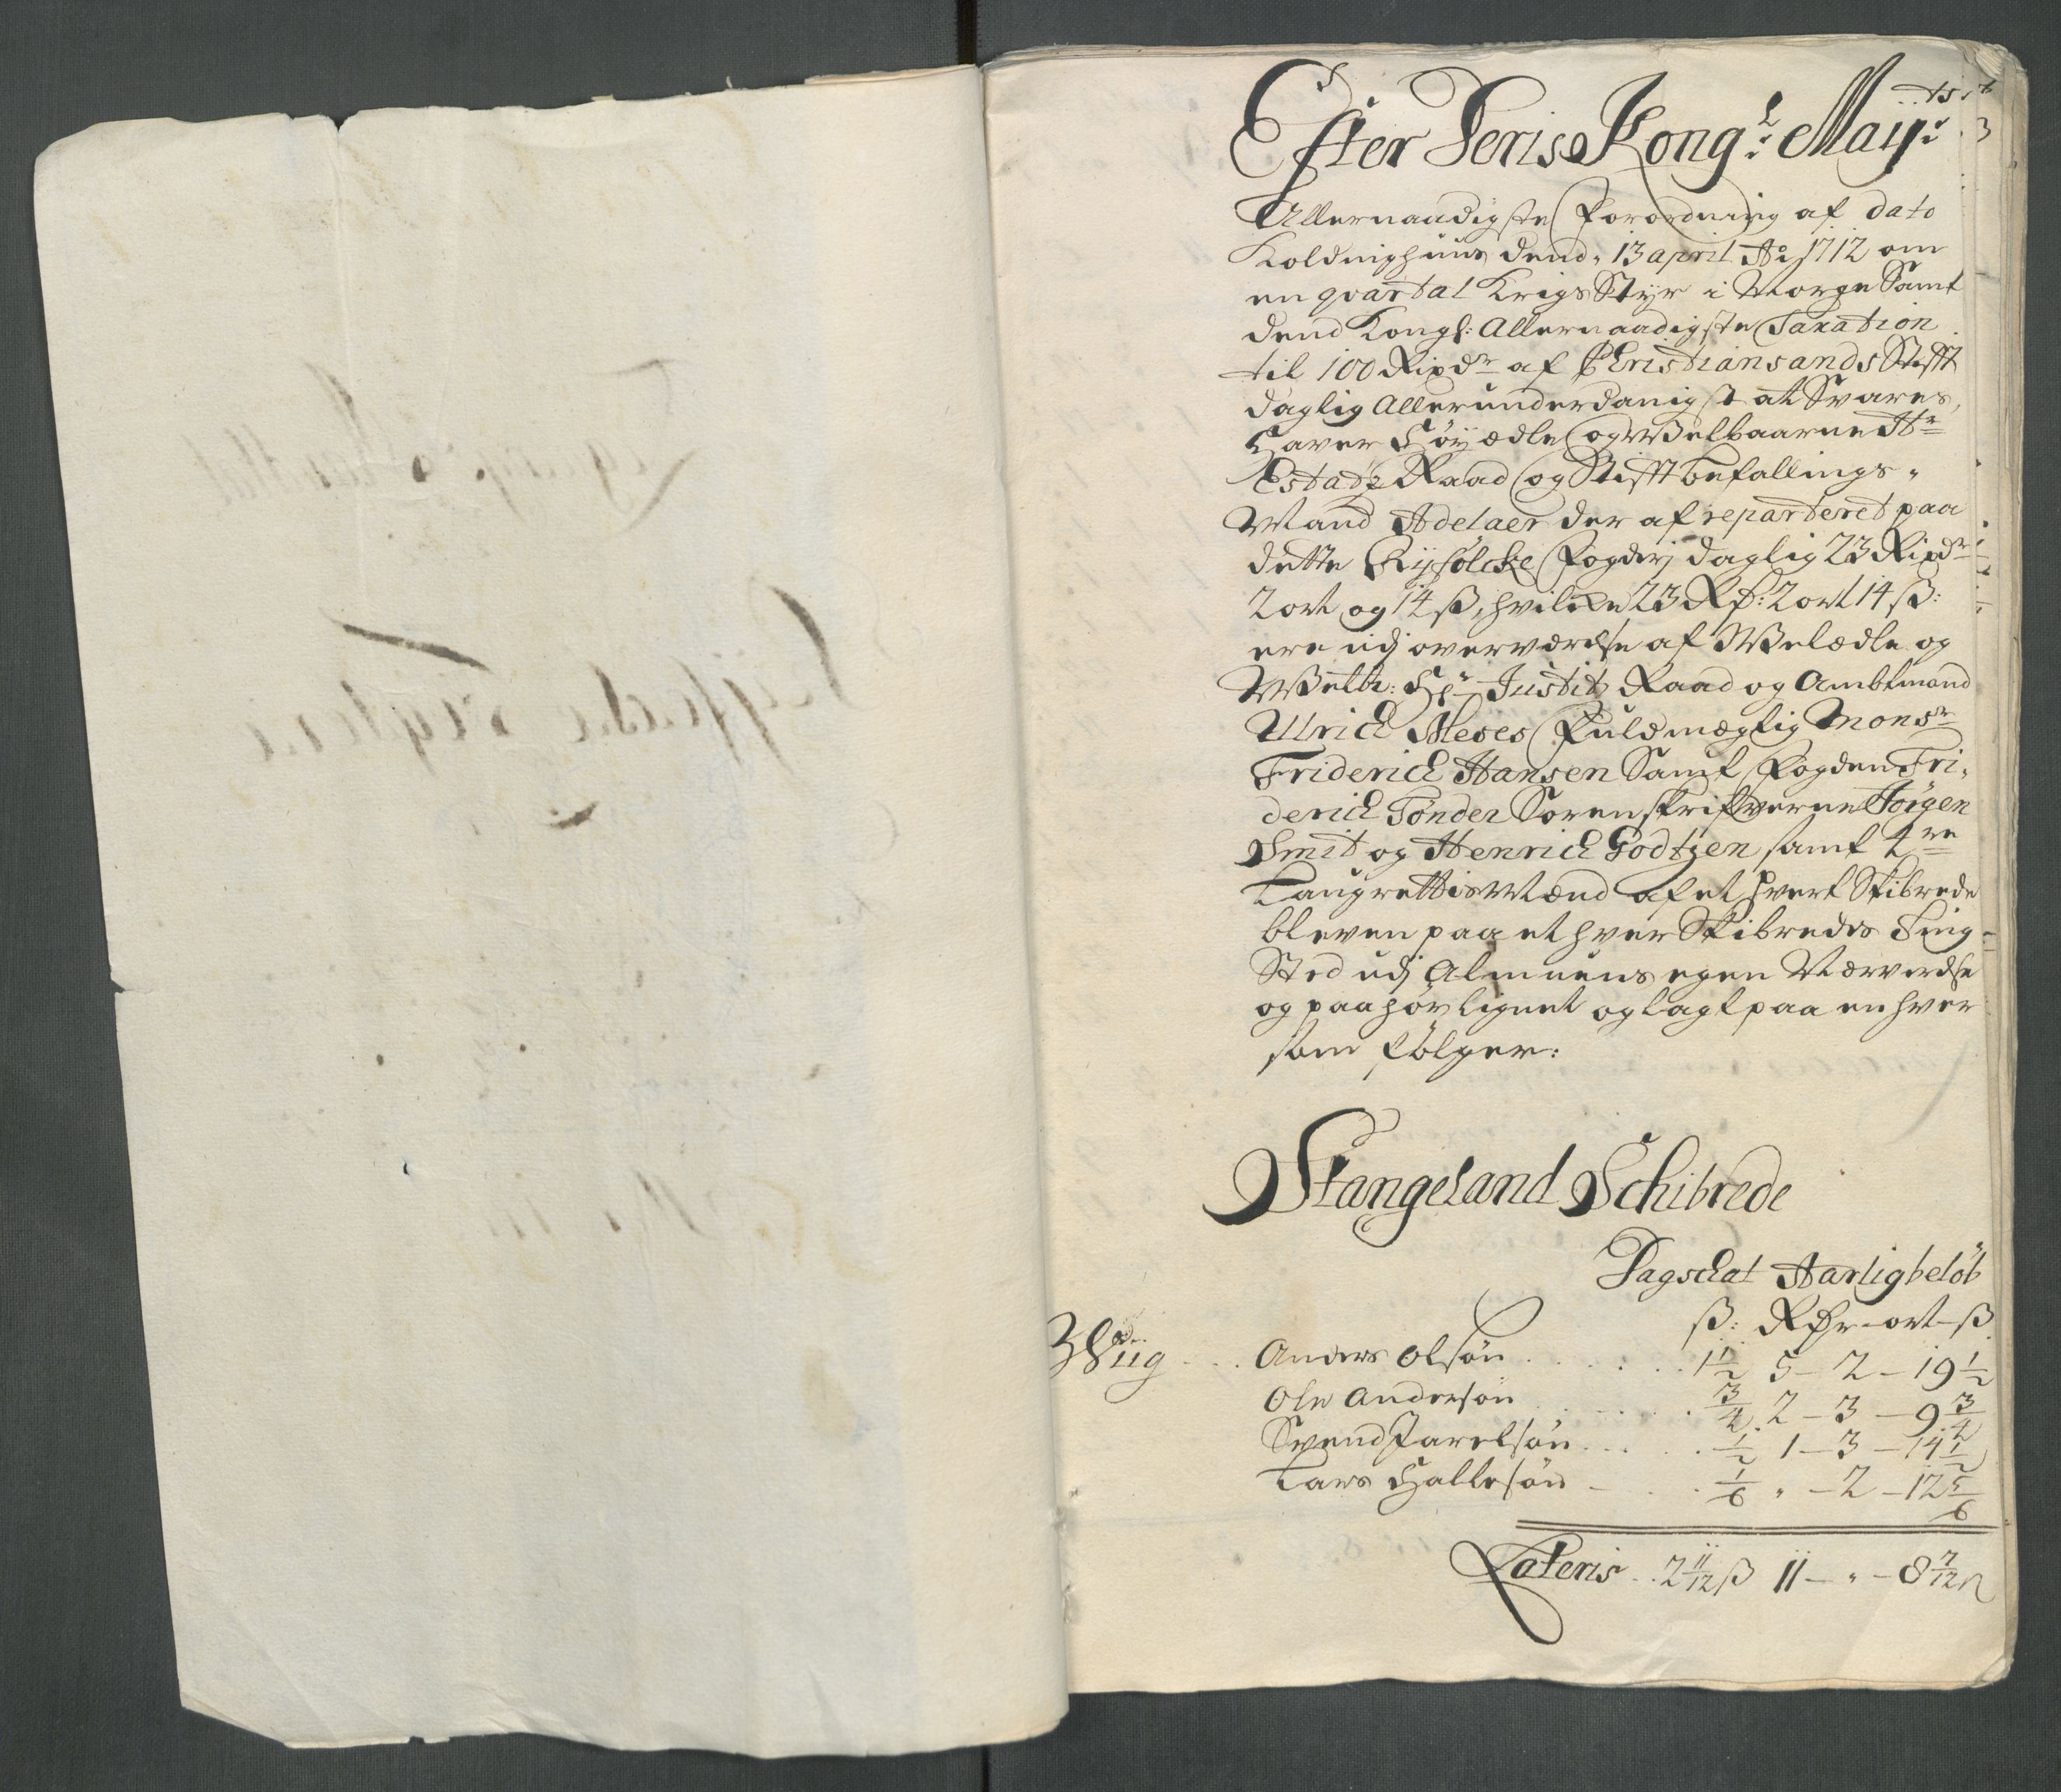 Efter Deris Kong:l Maÿ:ts
Allernaadigste Forordning af dato
Koldinghuus dend. 13 april Ao 1712 om
en qvartal Krigs Styr i Norge Samt
dend Kongl: Allernaadigste Taxation
til 100 Rixdr af Christiansands Stifft
daglig Allerunderdanigst at Svares,
Haver Høÿædle og Welbaarne Hr
Estatz Raad og Stifftbefallings-
Mand Adelaer der af reparteret paa
dette Ryfølcke Fogderj daglig 23 Rixdr
2 ort og 14 ß, hvilcke 23 Rd: 2 ort 14 ß:
ere udj overværelse af Welædle og
Welb: Hr Justitz Raad og Ambtmand
Ulrich Meses Fuldmægtig Monsr
Friderich Hansen Samt Fogden Fri-
derich Tønder Sorenskrifverne Jørgen
Smit og Henrich Godtzen samt 4re
Laugrettis Mænd af et hvert Skibrede
bleven paa et hver Skibredes Ting
Sted udj Almuens egen Nærværelse
og paahør lignet og lagt paa en hver
som følger:
Stangeland Schibrede
Dagschat Aarlig beløb
ß: Rdr - ort - ß
Anders Olsøn . . . 1 1/2 5 - 2 - 19 1/2
Ole Andersøn . . . 3/4 2 - 3 - 9 3/4
Svend Jarelsøn . . . 1/2 1 - 3 - 14 1/2
Lars Hallesøn - . . 1/6 " - 2 - 12 5/6
Lateris . . 2 11/12 ß 11 - " - 8 7/12 ß